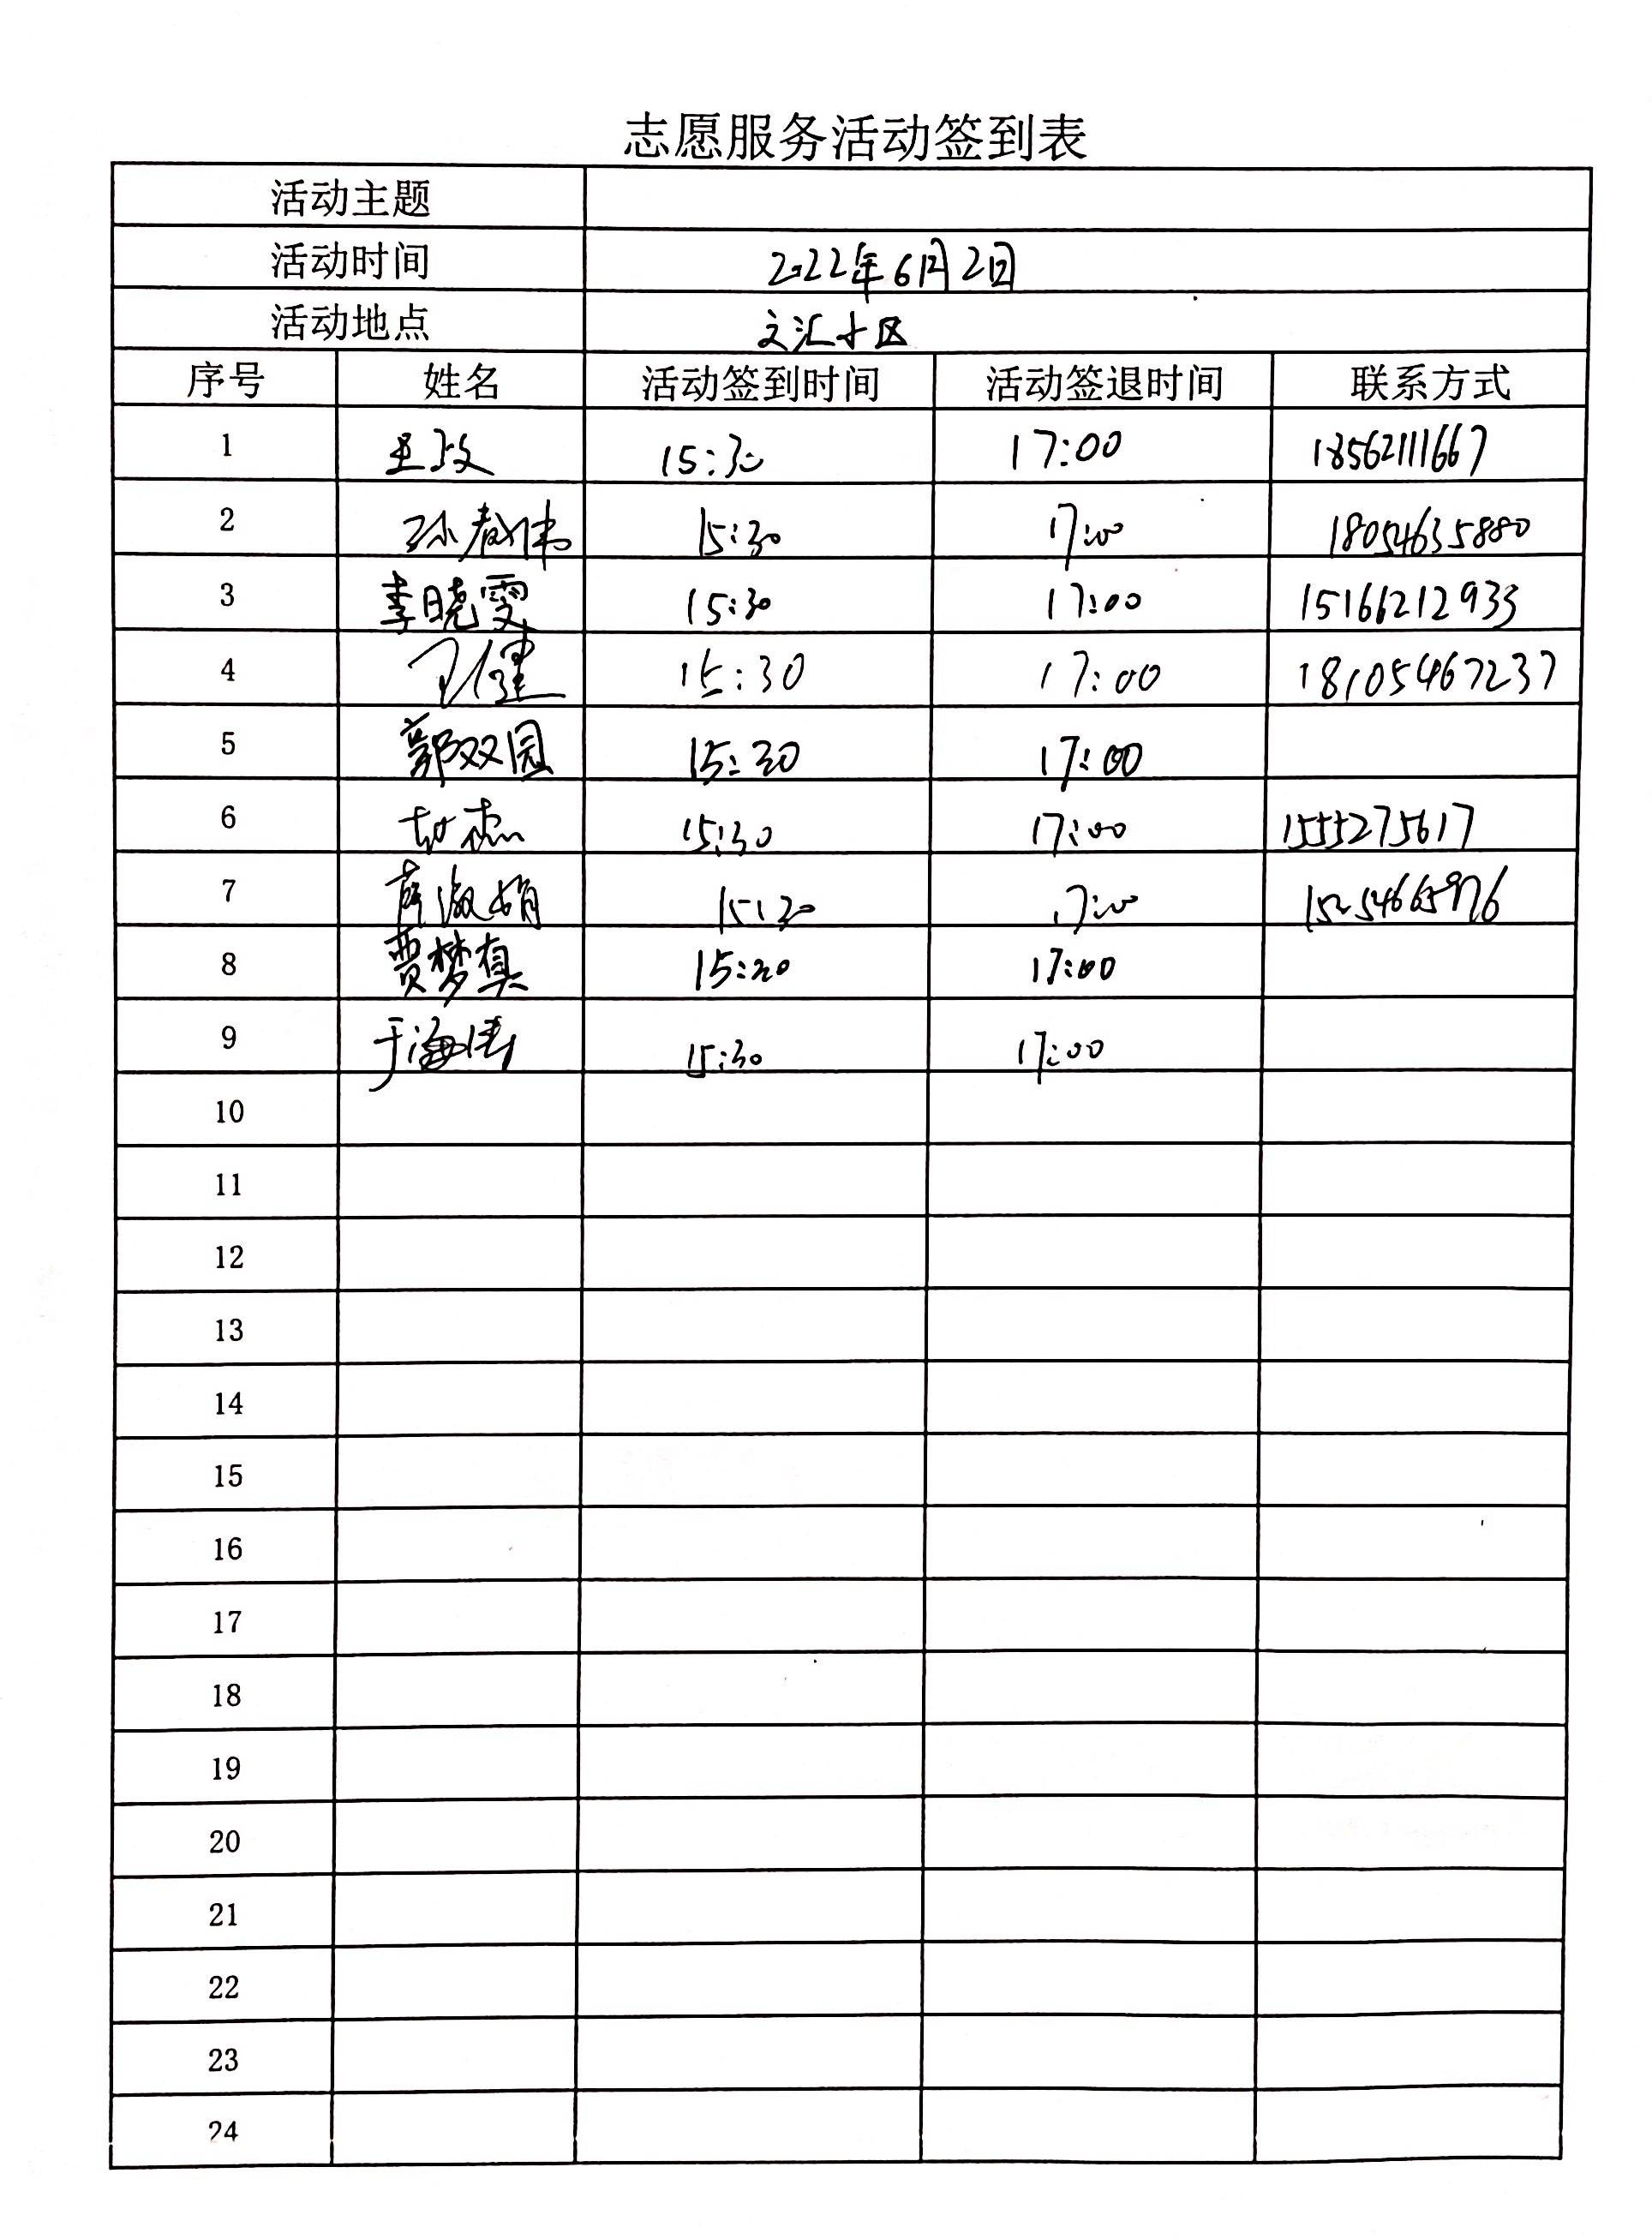 志愿服务活动签到表
活动主题
活动时间 2022年6月2日
活动地点 文汇小区
序号 姓名 活动签到时间 活动签退时间 联系方式
1 王政 15:30 17:00 18562111667
2 孙春伟 15:30 17:00 18054635880
3 李晓雯 15:30 17:00 15166212933
4 健 15:30 17:00 18105467237
5 郭双园 15:30 17:00
6 15:30 17:00 1555275617
7 薛淑娟 15:30 17:00
8 贾梦真 15:30 17:00
9 于海涛 15:30 17:00
10
11
12
13
14
15
16
17
18
19
20
21
22
23
24